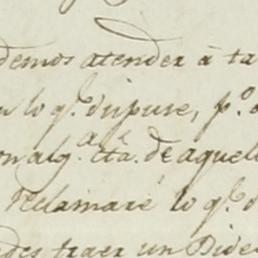 demos atender à ta
lo q.e dispuse, p.o
on alg.a cta. de aquel
reclamaré lo q.e d
des traer un Dide